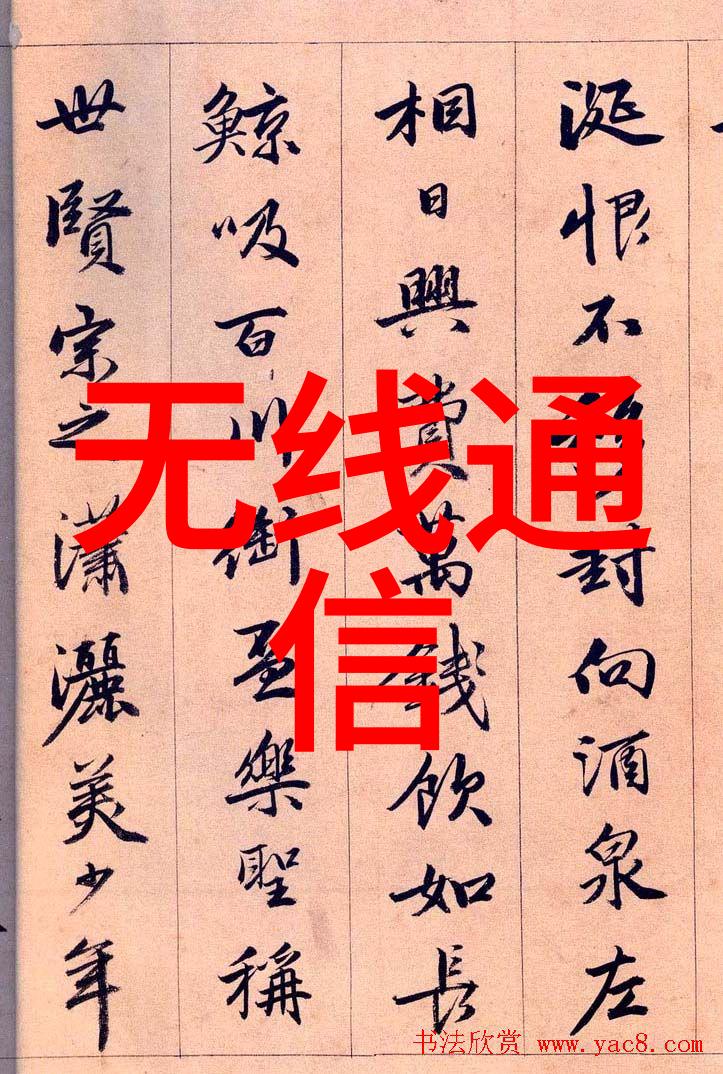 涎恨不移封向酒泉左
相日興費萬錢飲如長
鯨吸百川銜盃樂聖稱
世賢宗之瀟灑美少年
无线通
信
书法欣赏 www.yac8.com